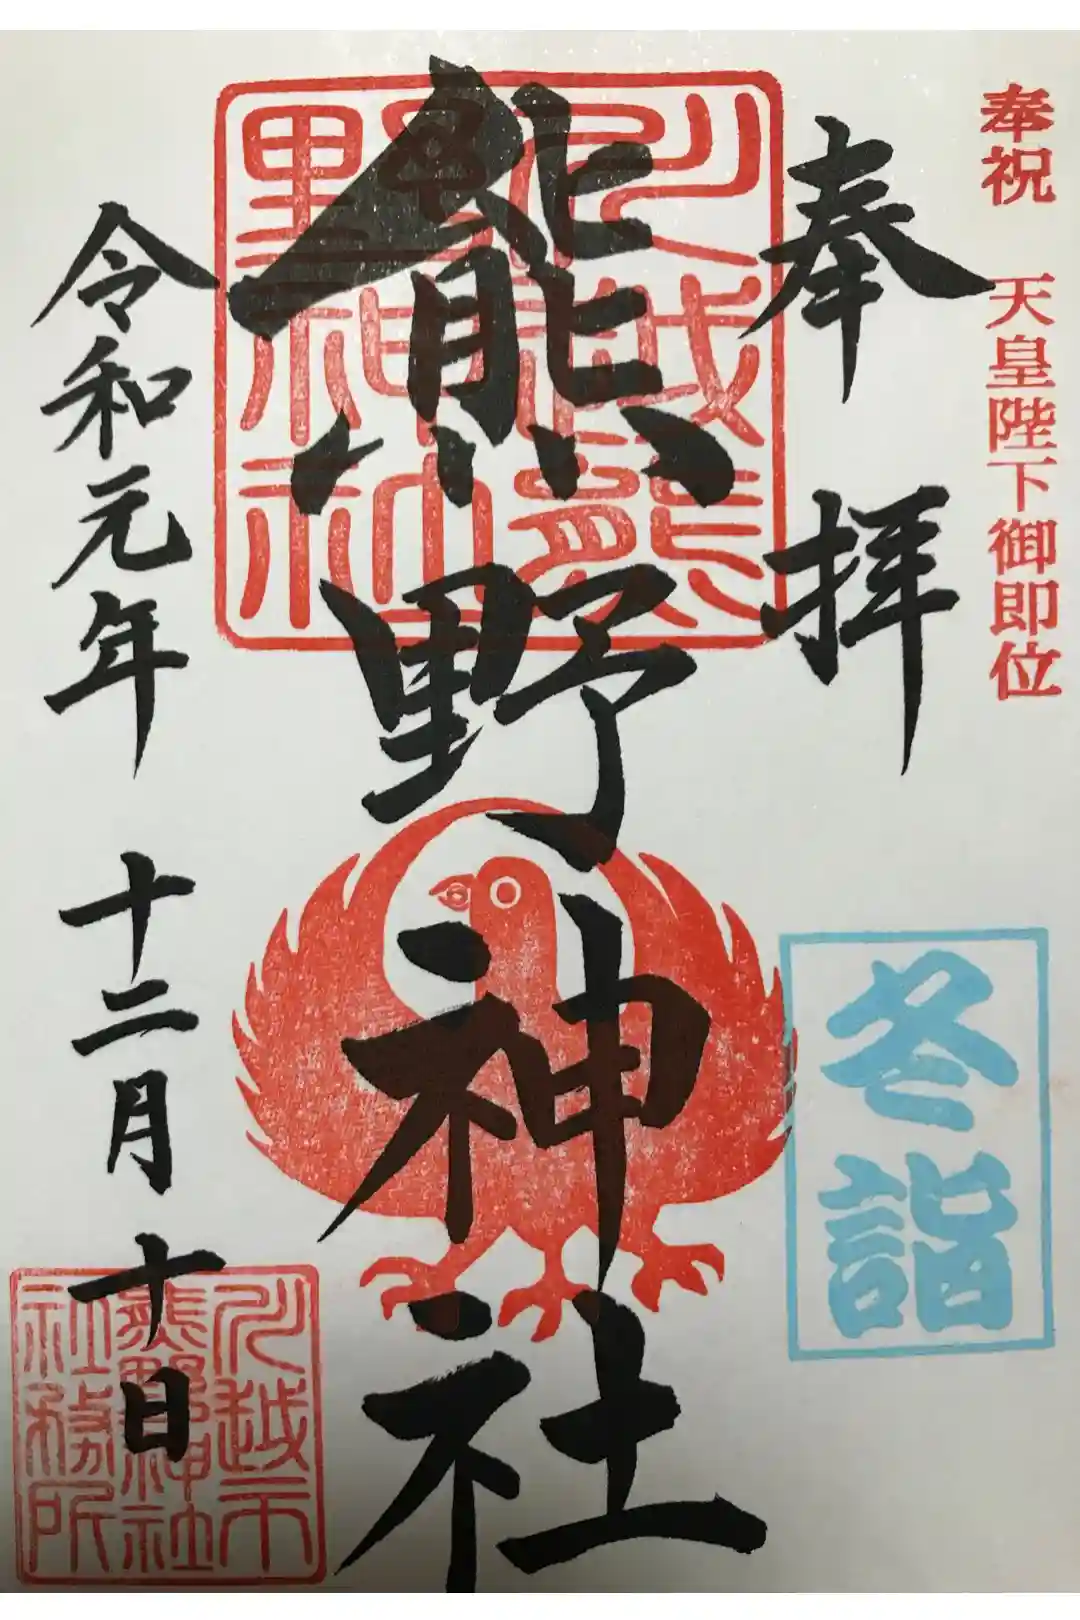 奉祝 天皇陛下御即位
奉拝
冬詣
川越熊
野神社
熊野神社
令和元年 十二月 十日
川越市
熊野神社
社務所